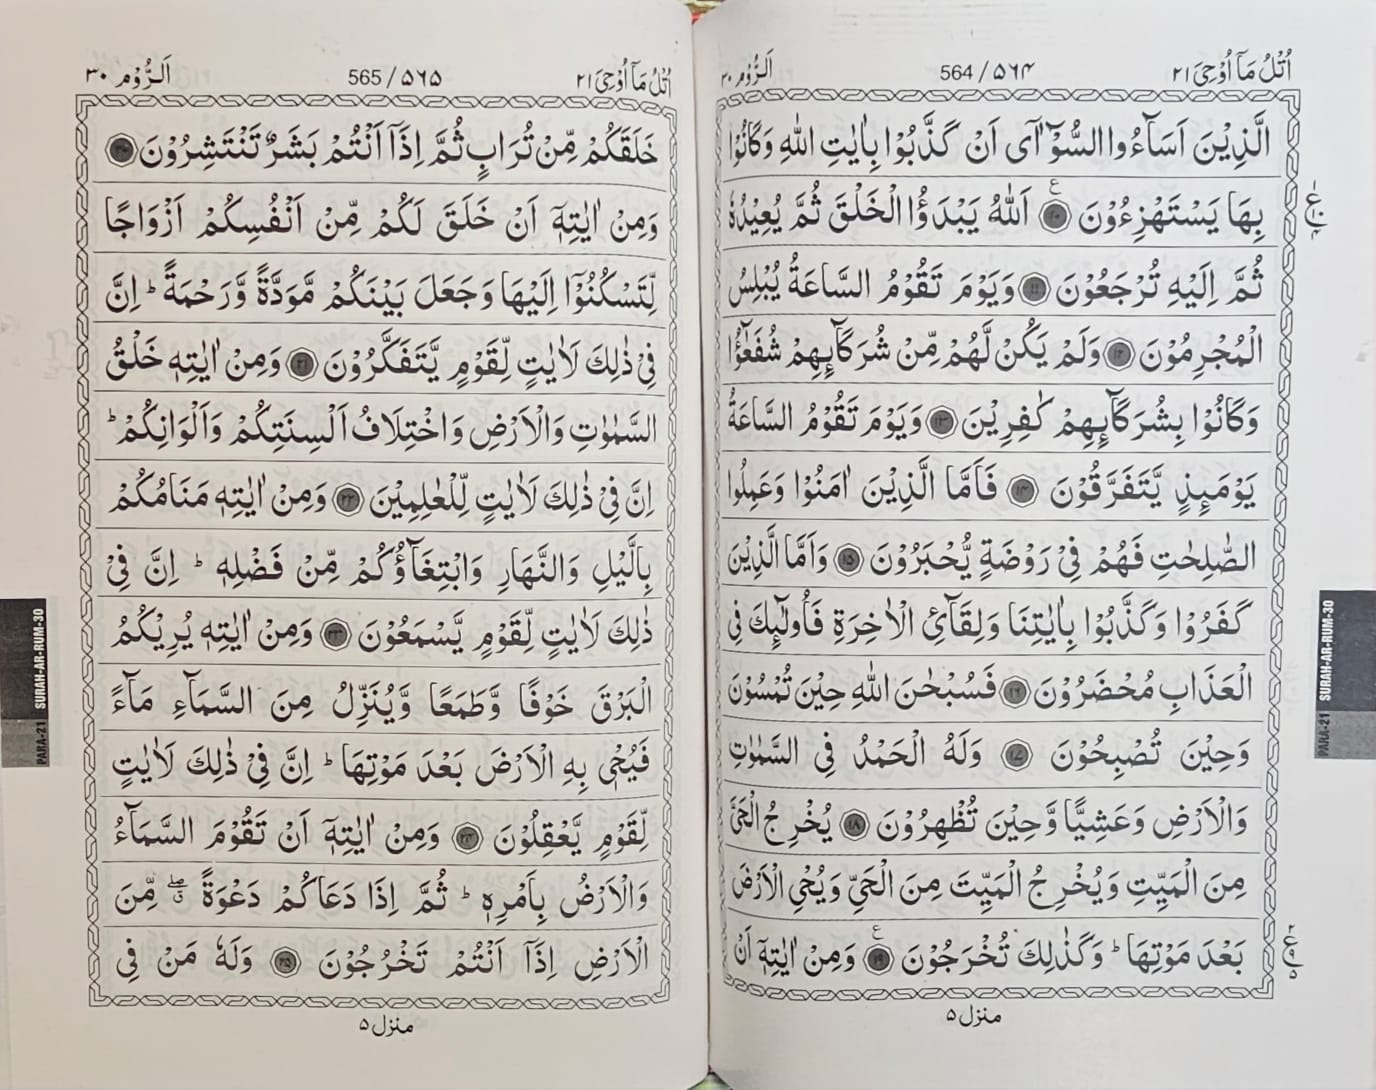 اُتْلُ مَآ اُوْحِيَ ٢١
564 / ۵۶۴
اَلرُّوْم ٣٠
الَّذِيْنَ اَسَآءُوا السُّوْٓاٰى اَنْ كَذَّبُوْا بِاٰيٰتِ اللّٰهِ وَكَانُوْا
بِهَا يَسْتَهْزِءُوْنَ ۱۰ ع اَللّٰهُ يَبْدَؤُا الْخَلْقَ ثُمَّ يُعِيْدُهٗ
ثُمَّ اِلَيْهِ تُرْجَعُوْنَ ۱۱ وَيَوْمَ تَقُوْمُ السَّاعَةُ يُبْلِسُ
الْمُجْرِمُوْنَ ۱۲ وَلَمْ يَكُنْ لَّهُمْ مِّنْ شُرَكَآئِهِمْ شُفَعٰٓؤُا
وَكَانُوْا بِشُرَكَآئِهِمْ كٰفِرِيْنَ ۱۳ وَيَوْمَ تَقُوْمُ السَّاعَةُ
يَوْمَئِذٍ يَّتَفَرَّقُوْنَ ۱۴ فَاَمَّا الَّذِيْنَ اٰمَنُوْا وَعَمِلُوا
الصّٰلِحٰتِ فَهُمْ فِيْ رَوْضَةٍ يُّحْبَرُوْنَ ۱۵ وَاَمَّا الَّذِيْنَ
كَفَرُوْا وَكَذَّبُوْا بِاٰيٰتِنَا وَلِقَآئِ الْاٰخِرَةِ فَاُولٰٓئِكَ فِي
الْعَذَابِ مُحْضَرُوْنَ ۱۶ فَسُبْحٰنَ اللّٰهِ حِيْنَ تُمْسُوْنَ
وَحِيْنَ تُصْبِحُوْنَ ۱۷ وَلَهُ الْحَمْدُ فِي السَّمٰوٰتِ
وَالْاَرْضِ وَعَشِيًّا وَّحِيْنَ تُظْهِرُوْنَ ۱۸ يُخْرِجُ الْحَيَّ
مِنَ الْمَيِّتِ وَيُخْرِجُ الْمَيِّتَ مِنَ الْحَيِّ وَيُحْيِ الْاَرْضَ
بَعْدَ مَوْتِهَا ؕ وَكَذٰلِكَ تُخْرَجُوْنَ ۱۹ ع وَمِنْ اٰيٰتِهٖٓ اَنْ
منزل ۵
SURAH-AR-RUM-30
PARA-21
اُتْلُ مَآ اُوْحِيَ ٢١
565 / ۵۶۵
اَلرُّوْم ٣٠
خَلَقَكُمْ مِّنْ تُرَابٍ ثُمَّ اِذَآ اَنْتُمْ بَشَرٌ تَنْتَشِرُوْنَ ۲۰
وَمِنْ اٰيٰتِهٖٓ اَنْ خَلَقَ لَكُمْ مِّنْ اَنْفُسِكُمْ اَزْوَاجًا
لِّتَسْكُنُوْٓا اِلَيْهَا وَجَعَلَ بَيْنَكُمْ مَّوَدَّةً وَّرَحْمَةً ؕ اِنَّ
فِيْ ذٰلِكَ لَاٰيٰتٍ لِّقَوْمٍ يَّتَفَكَّرُوْنَ ۲۱ وَمِنْ اٰيٰتِهٖ خَلْقُ
السَّمٰوٰتِ وَالْاَرْضِ وَاخْتِلَافُ اَلْسِنَتِكُمْ وَاَلْوَانِكُمْ ؕ
اِنَّ فِيْ ذٰلِكَ لَاٰيٰتٍ لِّلْعٰلِمِيْنَ ۲۲ وَمِنْ اٰيٰتِهٖ مَنَامُكُمْ
بِالَّيْلِ وَالنَّهَارِ وَابْتِغَآؤُكُمْ مِّنْ فَضْلِهٖ ؕ اِنَّ فِيْ
ذٰلِكَ لَاٰيٰتٍ لِّقَوْمٍ يَّسْمَعُوْنَ ۲۳ وَمِنْ اٰيٰتِهٖ يُرِيْكُمُ
الْبَرْقَ خَوْفًا وَّطَمَعًا وَّيُنَزِّلُ مِنَ السَّمَآءِ مَآءً
فَيُحْيٖ بِهِ الْاَرْضَ بَعْدَ مَوْتِهَا ؕ اِنَّ فِيْ ذٰلِكَ لَاٰيٰتٍ
لِّقَوْمٍ يَّعْقِلُوْنَ ۲۴ وَمِنْ اٰيٰتِهٖٓ اَنْ تَقُوْمَ السَّمَآءُ
وَالْاَرْضُ بِاَمْرِهٖ ؕ ثُمَّ اِذَا دَعَاكُمْ دَعْوَةً ۖ ق مِّنَ
الْاَرْضِ اِذَآ اَنْتُمْ تَخْرُجُوْنَ ۲۵ وَلَهٗ مَنْ فِي
منزل ۵
SURAH-AR-RUM-30
PARA-21